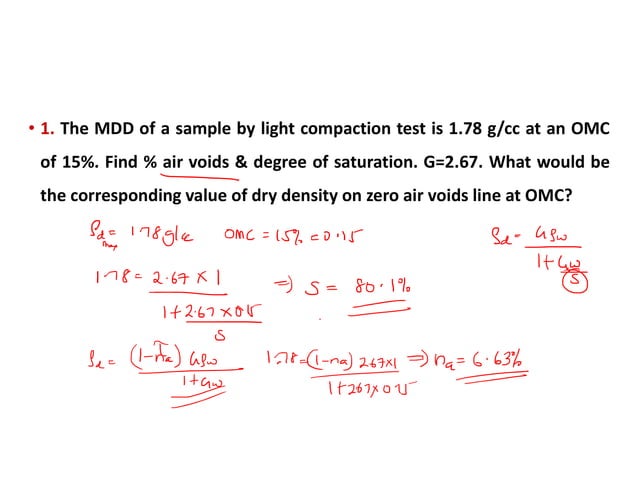 • 1. The MDD of a sample by light compaction test is 1.78 g/cc at an OMC
of 15%. Find % air voids & degree of saturation. G=2.67. What would be
the corresponding value of dry density on zero air voids line at OMC?
ρd max = 1.78 g/cc OMC = 15% = 0.15 ρd = Gρw / 1 + Gw/S
1.78 = 2.67 × 1 / 1 + 2.67 × 0.15/S ⇒ S = 80.1%
ρd = (1-na) Gρw / 1 + Gw 1.78 = (1-na) 2.67×1 / 1 + 2.67 × 0.15 ⇒ na = 6.63%